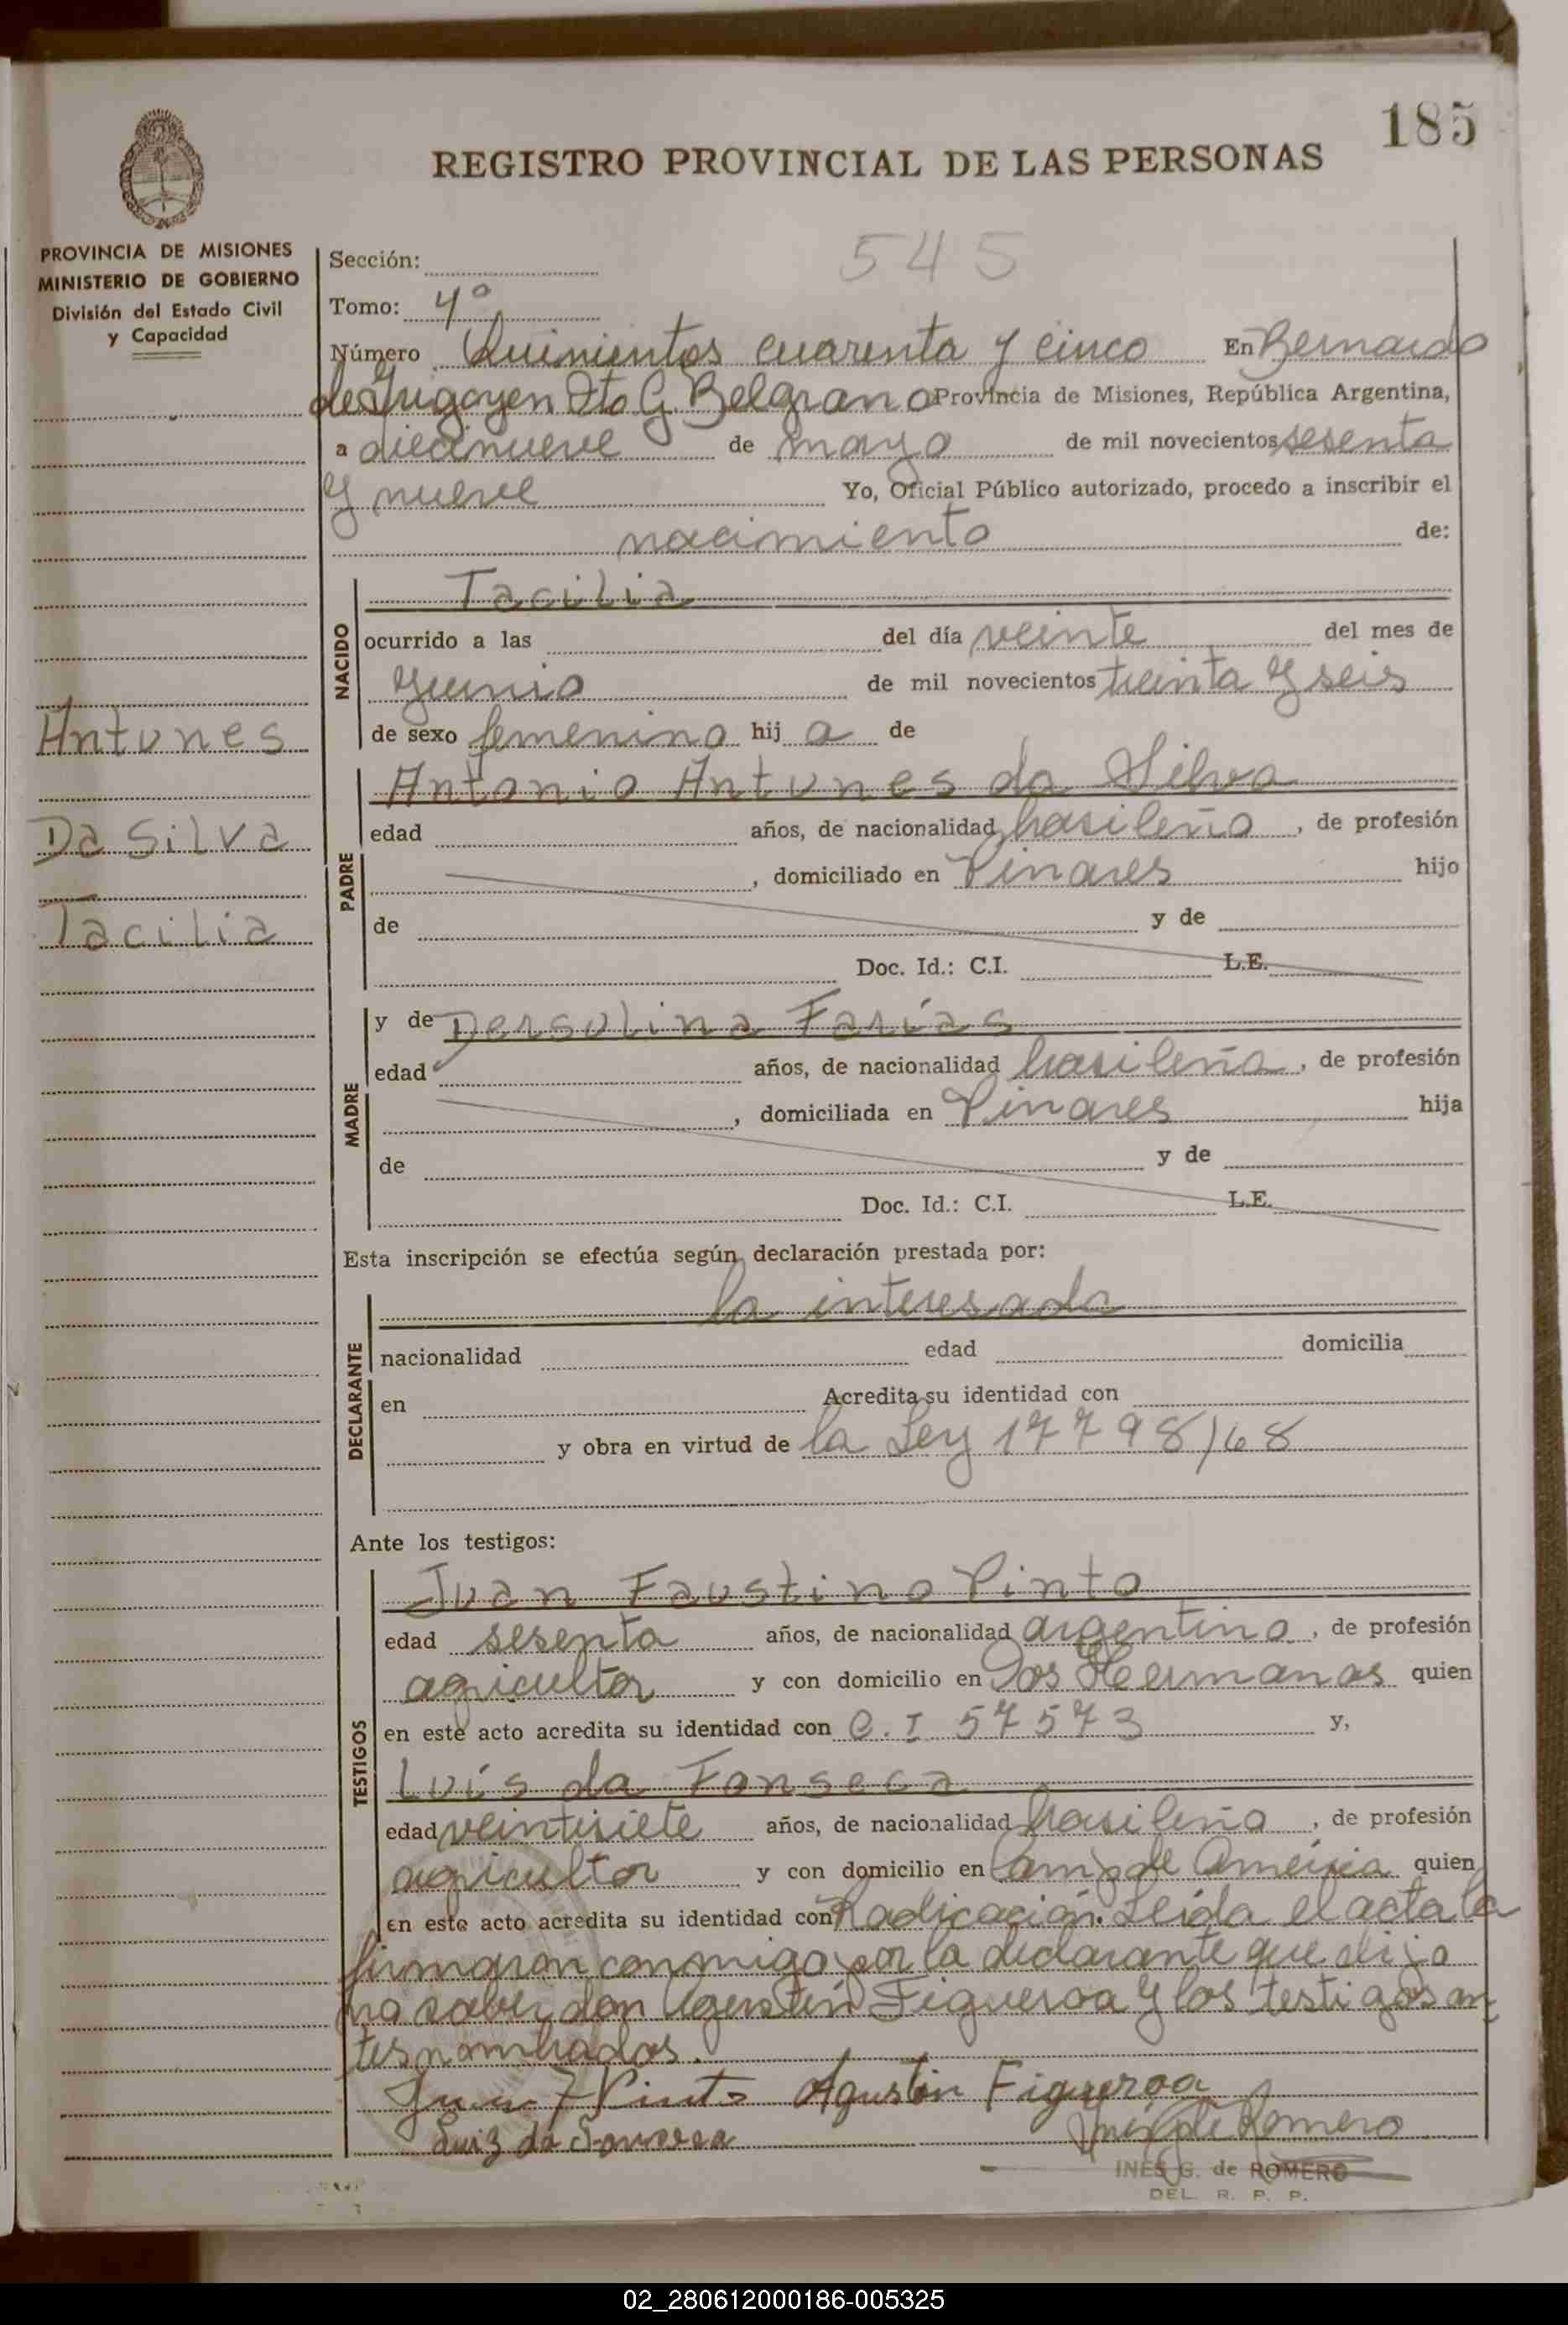 185
REGISTRO PROVINCIAL DE LAS PERSONAS
PROVINCIA DE MISIONES
MINISTERIO DE GOBIERNO
División del Estado Civil
y Capacidad
545
Sección:
Tomo: 4º
Número Quinientos cuarenta y cinco En Bernardo
de Yrigoyen Dto G. Belgrano Provincia de Misiones, República Argentina,
a diecinueve de mayo de mil novecientos sesenta
y nueve Yo, Oficial Público autorizado, procedo a inscribir el
nacimiento de:
NACIDO
Tacilia
ocurrido a las del día veinte del mes de
Junio de mil novecientos treinta y seis
de sexo femenino hij a de
Antunes
Da Silva
Tacilia
PADRE
Antonio Antunes da Silva
edad años, de nacionalidad brasileño, de profesión
, domiciliado en Pinares hijo
de y de
Doc. Id.: C.I. L.E.
MADRE
y de Dersolina Farías
edad años, de nacionalidad brasileña, de profesión
, domiciliada en Pinares hija
de y de
Doc. Id.: C.I. L.E.
Esta inscripción se efectúa según declaración prestada por:
DECLARANTE
la interesada
nacionalidad edad domicilia
en Acredita su identidad con
y obra en virtud de la Ley 17798/68
Ante los testigos:
TESTIGOS
Juan Faustino Pinto
edad sesenta años, de nacionalidad argentino, de profesión
agricultor y con domicilio en Dos Hermanas quien
en este acto acredita su identidad con C.I 57573 y,
Luís da Fonseca
edad veintisiete años, de nacionalidad brasileña, de profesión
agricultor y con domicilio en Camp de America quien
en este acto acredita su identidad con Radicación. Leida el acta la
firmaran conmigo por la declarante que dijo
no saber don Agustin Figueroa y los testigos an
tes nombrados.
Juan F Pinto Agustin Figueroa
Luiz da Fonseca Ines G de Romero
INES G. de ROMERO
DEL. R. P. P.
02_280612000186-005325